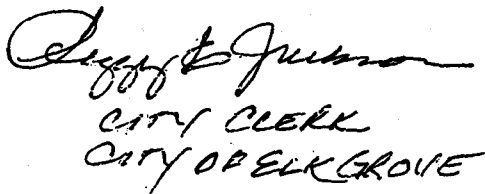 Peggy E Jackson
CITY CLERK
CITY OF ELK GROVE